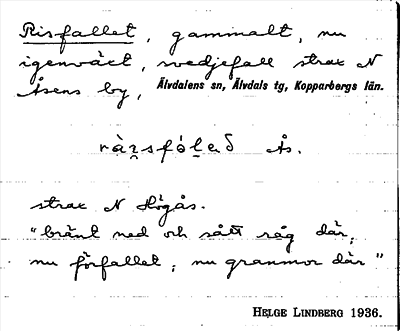 Risfallet, gammalt, nu
igenväxt, svedjefall strax N
Åsens by, Älvdalens sn, Älvdals tg, Kopparbergs län.
Ås.
strax N Högås.
"bränt ned och sått råg där,
nu förfallet, nu granmor där"
HELGE LINDBERG 1936.